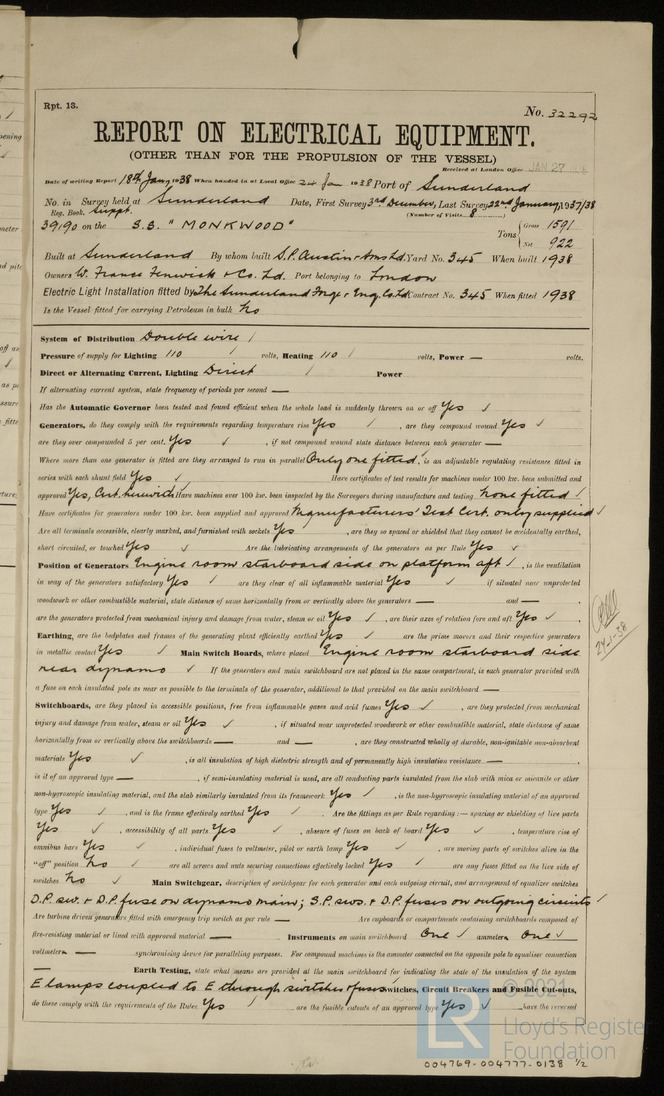 Rpt. 13.
No. 32292
REPORT ON ELECTRICAL EQUIPMENT.
(OTHER THAN FOR THE PROPULSION OF THE VESSEL)
Received at London Office JAN 27
Date of writing Report 18th Jany 1938 When handed in at Local Office 24 Jan 1938 Port of Sunderland
No. in Survey held at Sunderland Date, First Survey 3rd December, Last Survey 22nd January, 1937/38
Reg. Book. Suppt. (Number of Visits 8)
39190 on the S.S. "MONKWOOD" Tons { Gross 1591
Net 922
Built at Sunderland By whom built S.P. Austin & Sons Ld. Yard No. 345 When built 1938
Owners W. France Fenwick & Co. Ld. Port belonging to London
Electric Light Installation fitted by The Sunderland Forge & Eng. Co. Ld Contract No. 345 When fitted 1938
Is the Vessel fitted for carrying Petroleum in bulk No
System of Distribution Double wire /
Pressure of supply for Lighting 110 / volts, Heating 110 / volts, Power — volts.
Direct or Alternating Current, Lighting Direct / Power
If alternating current system, state frequency of periods per second —
Has the Automatic Governor been tested and found efficient when the whole load is suddenly thrown on or off Yes ✓
Generators, do they comply with the requirements regarding temperature rise Yes / , are they compound wound Yes ✓
are they over compounded 5 per cent. Yes ✓ , if not compound wound state distance between each generator —
Where more than one generator is fitted are they arranged to run in parallel Only one fitted, is an adjustable regulating resistance fitted in
series with each shunt field Yes ✓ Have certificates of test results for machines under 100 kw. been submitted and
approved Yes, Cert. herewith Have machines over 100 kw. been inspected by the Surveyors during manufacture and testing None fitted /
Have certificates for generators under 100 kw. been supplied and approved Manufacturers' Test Cert. only supplied ✓
Are all terminals accessible, clearly marked, and furnished with sockets Yes ✓ , are they so spaced or shielded that they cannot be accidentally earthed,
short circuited, or touched Yes ✓ Are the lubricating arrangements of the generators as per Rule Yes ✓
Position of Generators Engine room starboard side on platform aft / , is the ventilation
in way of the generators satisfactory Yes / are they clear of all inflammable material Yes ✓ if situated near unprotected
woodwork or other combustible material, state distance of same horizontally from or vertically above the generators — and — ,
are the generators protected from mechanical injury and damage from water, steam or oil Yes ✓ , are their axes of rotation fore and aft Yes ✓
Earthing, are the bedplates and frames of the generating plant efficiently earthed Yes ✓ are the prime movers and their respective generators
in metallic contact Yes ✓ Main Switch Boards, where placed Engine room starboard side
near dynamo ✓ If the generators and main switchboard are not placed in the same compartment, is each generator provided with
a fuse on each insulated pole as near as possible to the terminals of the generator, additional to that provided on the main switchboard —
Switchboards, are they placed in accessible positions, free from inflammable gases and acid fumes Yes ✓ , are they protected from mechanical
injury and damage from water, steam or oil Yes ✓ , if situated near unprotected woodwork or other combustible material, state distance of same
horizontally from or vertically above the switchboards — and — , are they constructed wholly of durable, non-ignitable non-absorbent
materials Yes ✓ , is all insulation of high dielectric strength and of permanently high insulation resistance. — ,
is it of an approved type — , if semi-insulating material is used, are all conducting parts insulated from the slab with mica or micanite or other
non-hygroscopic insulating material, and the slab similarly insulated from its framework Yes / , is the non-hygroscopic insulating material of an approved
type Yes ✓ , and is the frame effectively earthed Yes ✓ . Are the fittings as per Rule regarding :— spacing or shielding of live parts
Yes ✓ , accessibility of all parts Yes ✓ , absence of fuses on back of board Yes ✓ , temperature rise of
omnibus bars Yes ✓ , individual fuses to voltmeter, pilot or earth lamp Yes ✓ , are moving parts of switches alive in the
"off" position No ✓ are all screws and nuts securing connections effectively locked Yes ✓ are any fuses fitted on the live side of
switches No ✓ Main Switchgear, description of switchgear for each generator and each outgoing circuit, and arrangement of equalizer switches
D.P. sw. & D.P. fuse on dynamo main; S.P. sws. & D.P. fuses on outgoing circuits ✓
Are turbine driven generators fitted with emergency trip switch as per rule — Are cupboards or compartments containing switchboards composed of
fire-resisting material or lined with approved material — Instruments on main switchboard One ✓ ammeters One ✓
voltmeters — synchronising device for paralleling purposes. For compound machines is the ammeter connected on the opposite pole to equaliser connection
— Earth Testing, state what means are provided at the main switchboard for indicating the state of the insulation of the system
E lamps coupled to E through switches & fuses Switches, Circuit Breakers and Fusible Cut-outs,
do these comply with the requirements of the Rules Yes ✓ are the fusible cutouts of an approved type Yes ✓ have the reversed
24-1-38
© 2021
LR
Lloyd's Register
Foundation
004769-004777-0138 1/2